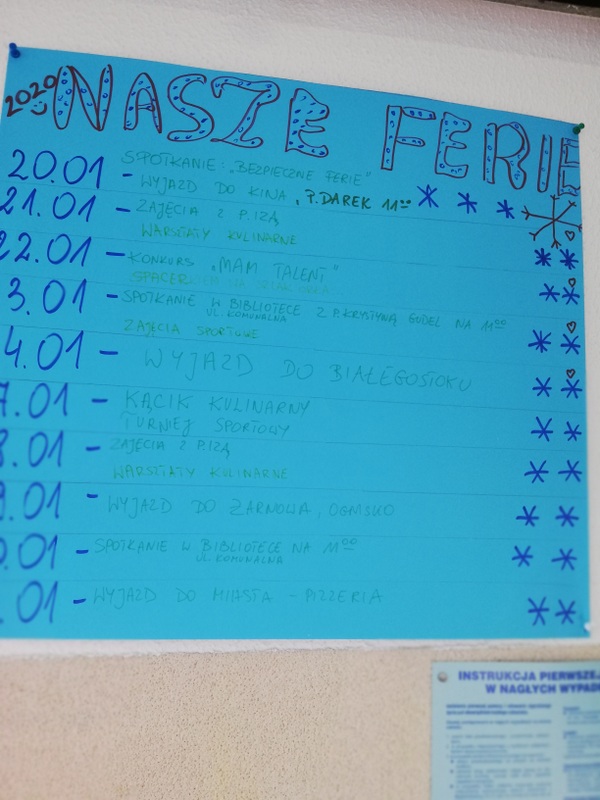 2020 NASZE FERIE
20.01 - SPOTKANIE: „BEZPIECZNE FERIE"
WYJAZD DO KINA, P. DAREK 11⁰⁰
21.01 - ZAJĘCIA Z P. IZĄ
WARSZTATY KULINARNE
22.01 - KONKURS „MAM TALENT"
3.01 - SPOTKANIE W BIBLIOTECE Z P. KRYSTYNĄ GUDEL NA 11⁰⁰
UL. KOMUNALNA
ZAJĘCIA SPORTOWE
4.01 - WYJAZD DO BIAŁEGOSTOKU
7.01 - KĄCIK KULINARNY
TURNIEJ SPORTOWY
8.01 - ZAJĘCIA Z P. IZĄ
WARSZTATY KULINARNE
9.01 - WYJAZD DO ŻARNOWA, OGNISKO
0.01 - SPOTKANIE W BIBLIOTECE NA 11⁰⁰
UL. KOMUNALNA
.01 - WYJAZD DO MIASTA - PIZZERIA
INSTRUKCJA PIERWSZEJ
W NAGŁYCH WYPAD